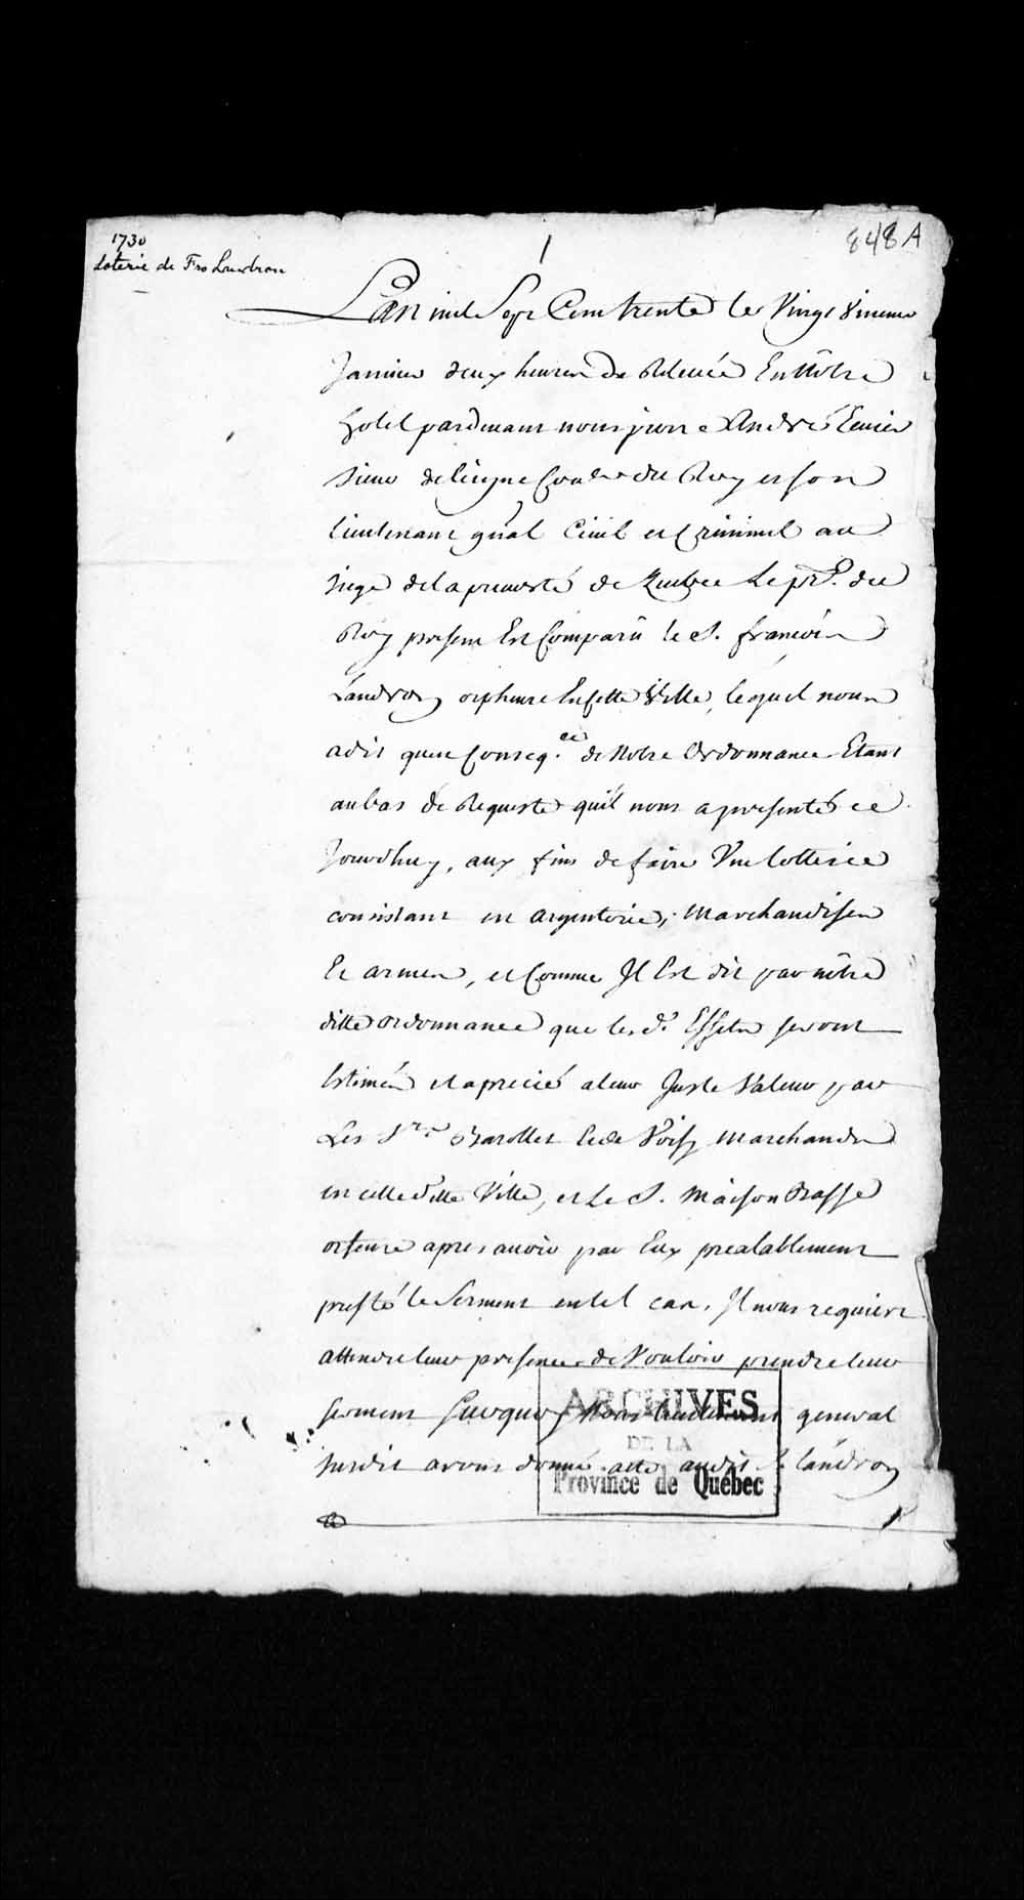 1730
Loterie de Frs Landron
1
848 A
Lan mil Sept Cent trente le Vingt
Janvier deux heures de Relevée En Nôtre
hotel pardevant nous pierre André
sieur deleigne Coner du Roy et son
lieutenant gñal Civil et Criminel au
siege de la prevosté de Quebec Le pr. du
Roy present Est Comparû le S. françois
Landron orpheure En cette Ville, lequel nous
a dit quen Conseq.ce de Notre Ordonnance Etant
au bas de Requeste quil nous a presentée ce
Jourdhuy, aux fins de faire Vne lotterie
consistant en argenterie, Marchandises
Et armes, et Comme Jl Est dit par nôtre
ditte ordonnance que les d. Effets seront
Estimés et apreciés a leur Juste Valeur par
Les Srs. Barollet et de Voisy Marchands
en cette ditte Ville, et Le S. Maison Basse
orfeure apres avoir par Eux prealablement
presté le Serment en tel cas, Jl nous requiert
attendu leur presence de Vouloir prendre leur
serment Surquoy Nous lieutenant general
susdit avons donné acte audit S. Landron
ARCHIVES
DE LA
Province de Québec